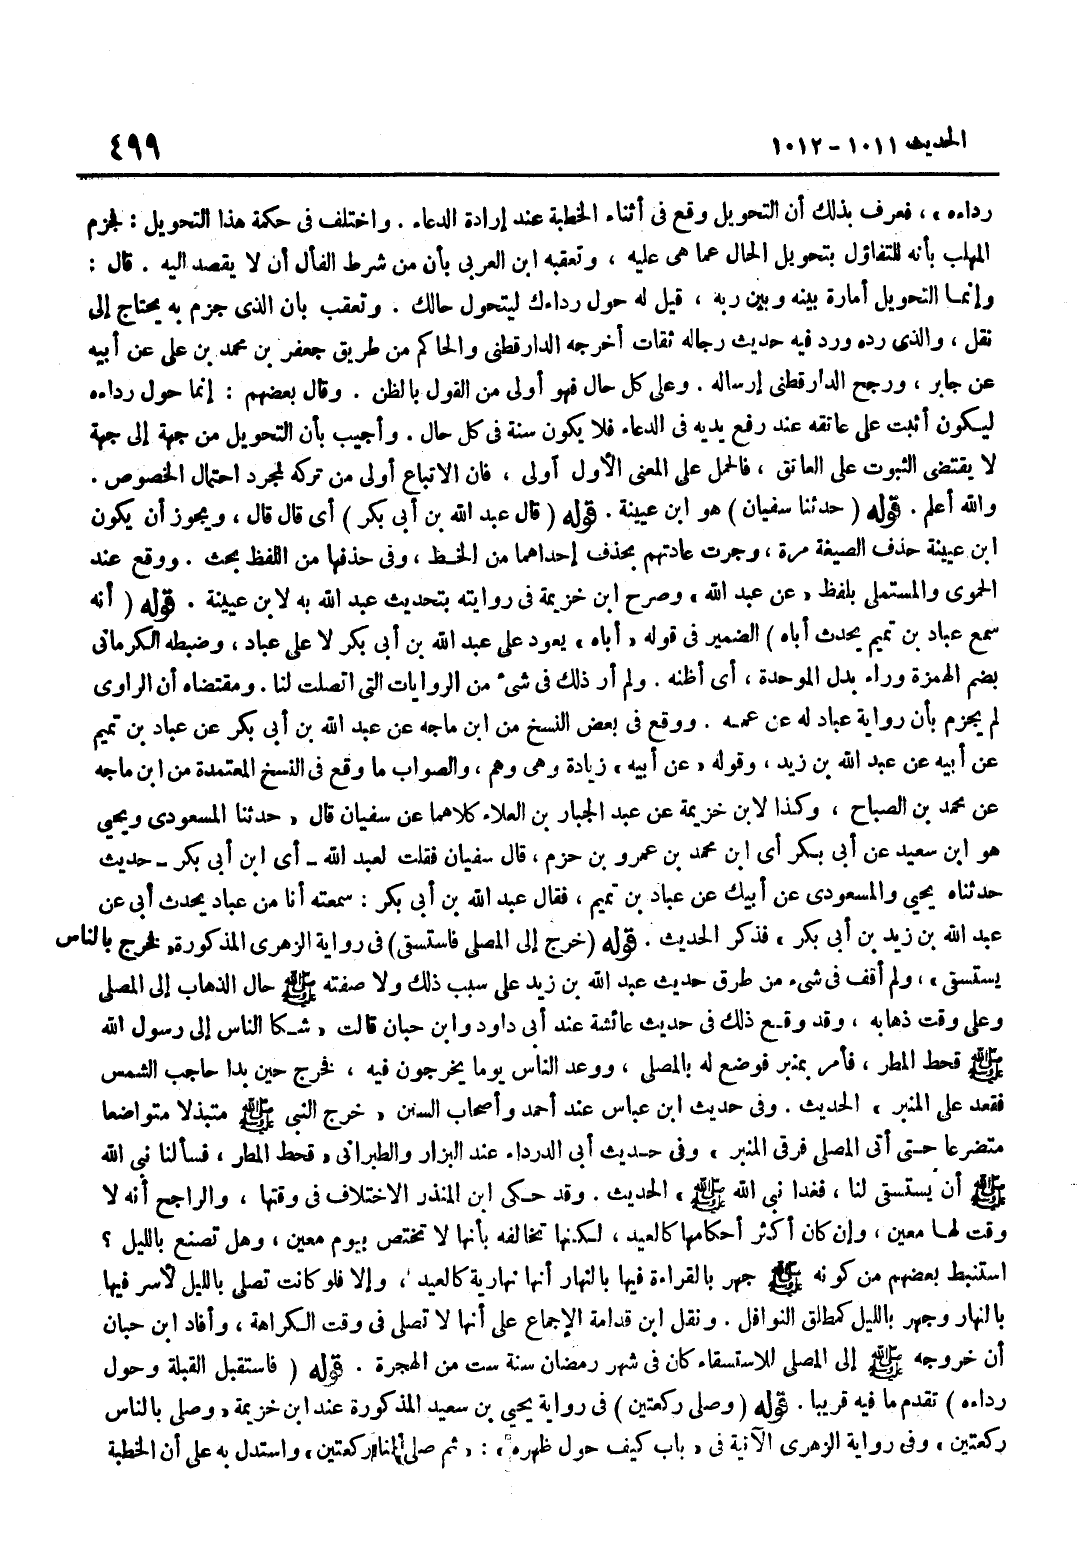 الحديث ١٠١١ - ١٠١٢
٤٩٩
رداءه » ، فعرف بذلك أن التحويل وقع فى أثناء الخطبة عند إرادة الدعاء . واختلف فى حكمة هذا التحويل : لجزم
المهلب بأنه للتفاؤل بتحويل الحال عما هى عليه ، وتعقبه ابن العربى بأن من شرط الفأل أن لا يقصد اليه . قال :
وإنمـا التحويل أمارة بينه وبين ربه ، قيل له حول رداءك ليتحول حالك . وتعقب بان الذى جزم به يحتاج إلى
نقل ، والذى رده ورد فيه حديث رجاله ثقات أخرجه الدارقطنى والحاكم من طريق جعفر بن محمد بن على عن أبيه
عن جابر ، ورجح الدارقطنى إرساله . وعلى كل حال فهو أولى من القول بالظن . وقال بعضهم : إنما حول رداءه
ليكون أثبت على عاتقه عند رفع يديه فى الدعاء فلا يكون سنة فى كل حال . وأجيب بأن التحويل من جهة إلى جهة
لا يقتضى الثبوت على العاتق ، فالحمل على المعنى الأول أولى ، فان الاتباع أولى من تركه لمجرد احتمال الخصوص .
والله أعلم . قوله ( حدثنا سفيان ) هو ابن عيينة . قوله ( قال عبد الله بن أبى بكر ) أى قال قال ، ويجوز أن يكون
ابن عيينة حذف الصيغة مرة ، وجرت عادتهم بحذف إحداهما من الخـط ، وفى حذفها من اللفظ بحث . ووقع عند
الحموى والمستملى بلفظ « عن عبد الله » وصرح ابن خزيمة فى روايته بتحديث عبد الله به لابن عيينة . قوله ( أنه
سمع عباد بن تميم يحدث أباه ) الضمير فى قوله « أباه » يعود على عبد الله بن أبى بكر لا على عباد ، وضبطه الكرمانى
بضم الهمزة وراء بدل الموحدة ، أى أظنه . ولم أر ذلك فى شىء من الروايات التى اتصلت لنا . ومقتضاه أن الراوى
لم يجزم بأن رواية عباد له عن عمـه . ووقع فى بعض النسخ من ابن ماجه عن عبد الله بن أبى بكر عن عباد بن تميم
عن أبيه عن عبد الله بن زيد ، وقوله « عن أبيه » زيادة وهى وهم ، والصواب ما وقع فى النسخ المعتمدة من ابن ماجه
عن محمد بن الصباح ، وكذا لابن خزيمة عن عبد الجبار بن العلاء كلاهما عن سفيان قال « حدثنا المسعودى ويحيى
هو ابن سعيد عن أبى بـكر أى ابن محمد بن عمرو بن حزم ، قال سفيان فقلت لعبد الله ـ أى ابن أبى بكر ـ حديث
حدثناه يحيى والمسعودى عن أبيك عن عباد بن تميم ، فقال عبد الله بن أبى بكر : سمعته أنا من عباد يحدث أبى عن
عبد الله بن زيد بن أبى بكر » فذكر الحديث . قوله (خرج إلى المصلى فاستسقى) فى رواية الزهرى المذكورة « لخرج بالناس
يستسقى » ، ولم أقف فى شىء من طرق حديث عبد الله بن زيد على سبب ذلك ولا صفته ﷺ حال الذهاب إلى المصلى
وعلى وقت ذهابه ، وقد وقـع ذلك فى حديث عائشة عند أبى داود وابن حبان قالت « شـكا الناس إلى رسول الله
ﷺ قحط المطر ، فأمر بمنبر فوضع له بالمصلى ، ووعد الناس يوما يخرجون فيه ، لخرج حين بدا حاجب الشمس
فقعد على المنبر » الحديث . وفى حديث ابن عباس عند أحمد وأصحاب السنن « خرج النبى ﷺ متبذلا متواضعا
متضرعا حـتى أتى المصلى فرقى المنبر » وفى حـديث أبى الدرداء عند البزار والطبرانى « قحط المطر ، فسألنا نبى الله
ﷺ أن يستسقى لنا ، فغدا نبى الله ﷺ » الحديث . وقد حـكى ابن المنذر الاختلاف فى وقتها ، والراجح أنه لا
وقت لهـا معين ، وإن كان أكثر أحكامها كالعيد ، لـكنها تخالفه بأنها لا تختص بيوم معين ، وهل تصنع بالليل ؟
استنبط بعضهم من كونه ﷺ جهر بالقراءة فيها بالنهار أنها نهارية كالعيد ، وإلا فلو كانت تصلى بالليل لأسر فيها
بالنهار وجهر بالليل كمطلق النوافل . ونقل ابن قدامة الإجماع على أنها لا تصلى فى وقت الكراهة ، وأفاد ابن حبان
أن خروجه ﷺ إلى المصلى للاستسقاء كان فى شهر رمضان سنة ست من الهجرة . قوله ( فاستقبل القبلة وحول
رداءه ) تقدم ما فيه قريبا . قوله ( وصلى ركعتين ) فى رواية يحيى بن سعيد المذكورة عند ابن خزيمة « وصلى بالناس
ركعتين » وفى رواية الزهرى الآتية فى « باب كيف حول ظهره » : « ثم صلى لنا ركعتين » واستدل به على أن الخطبة